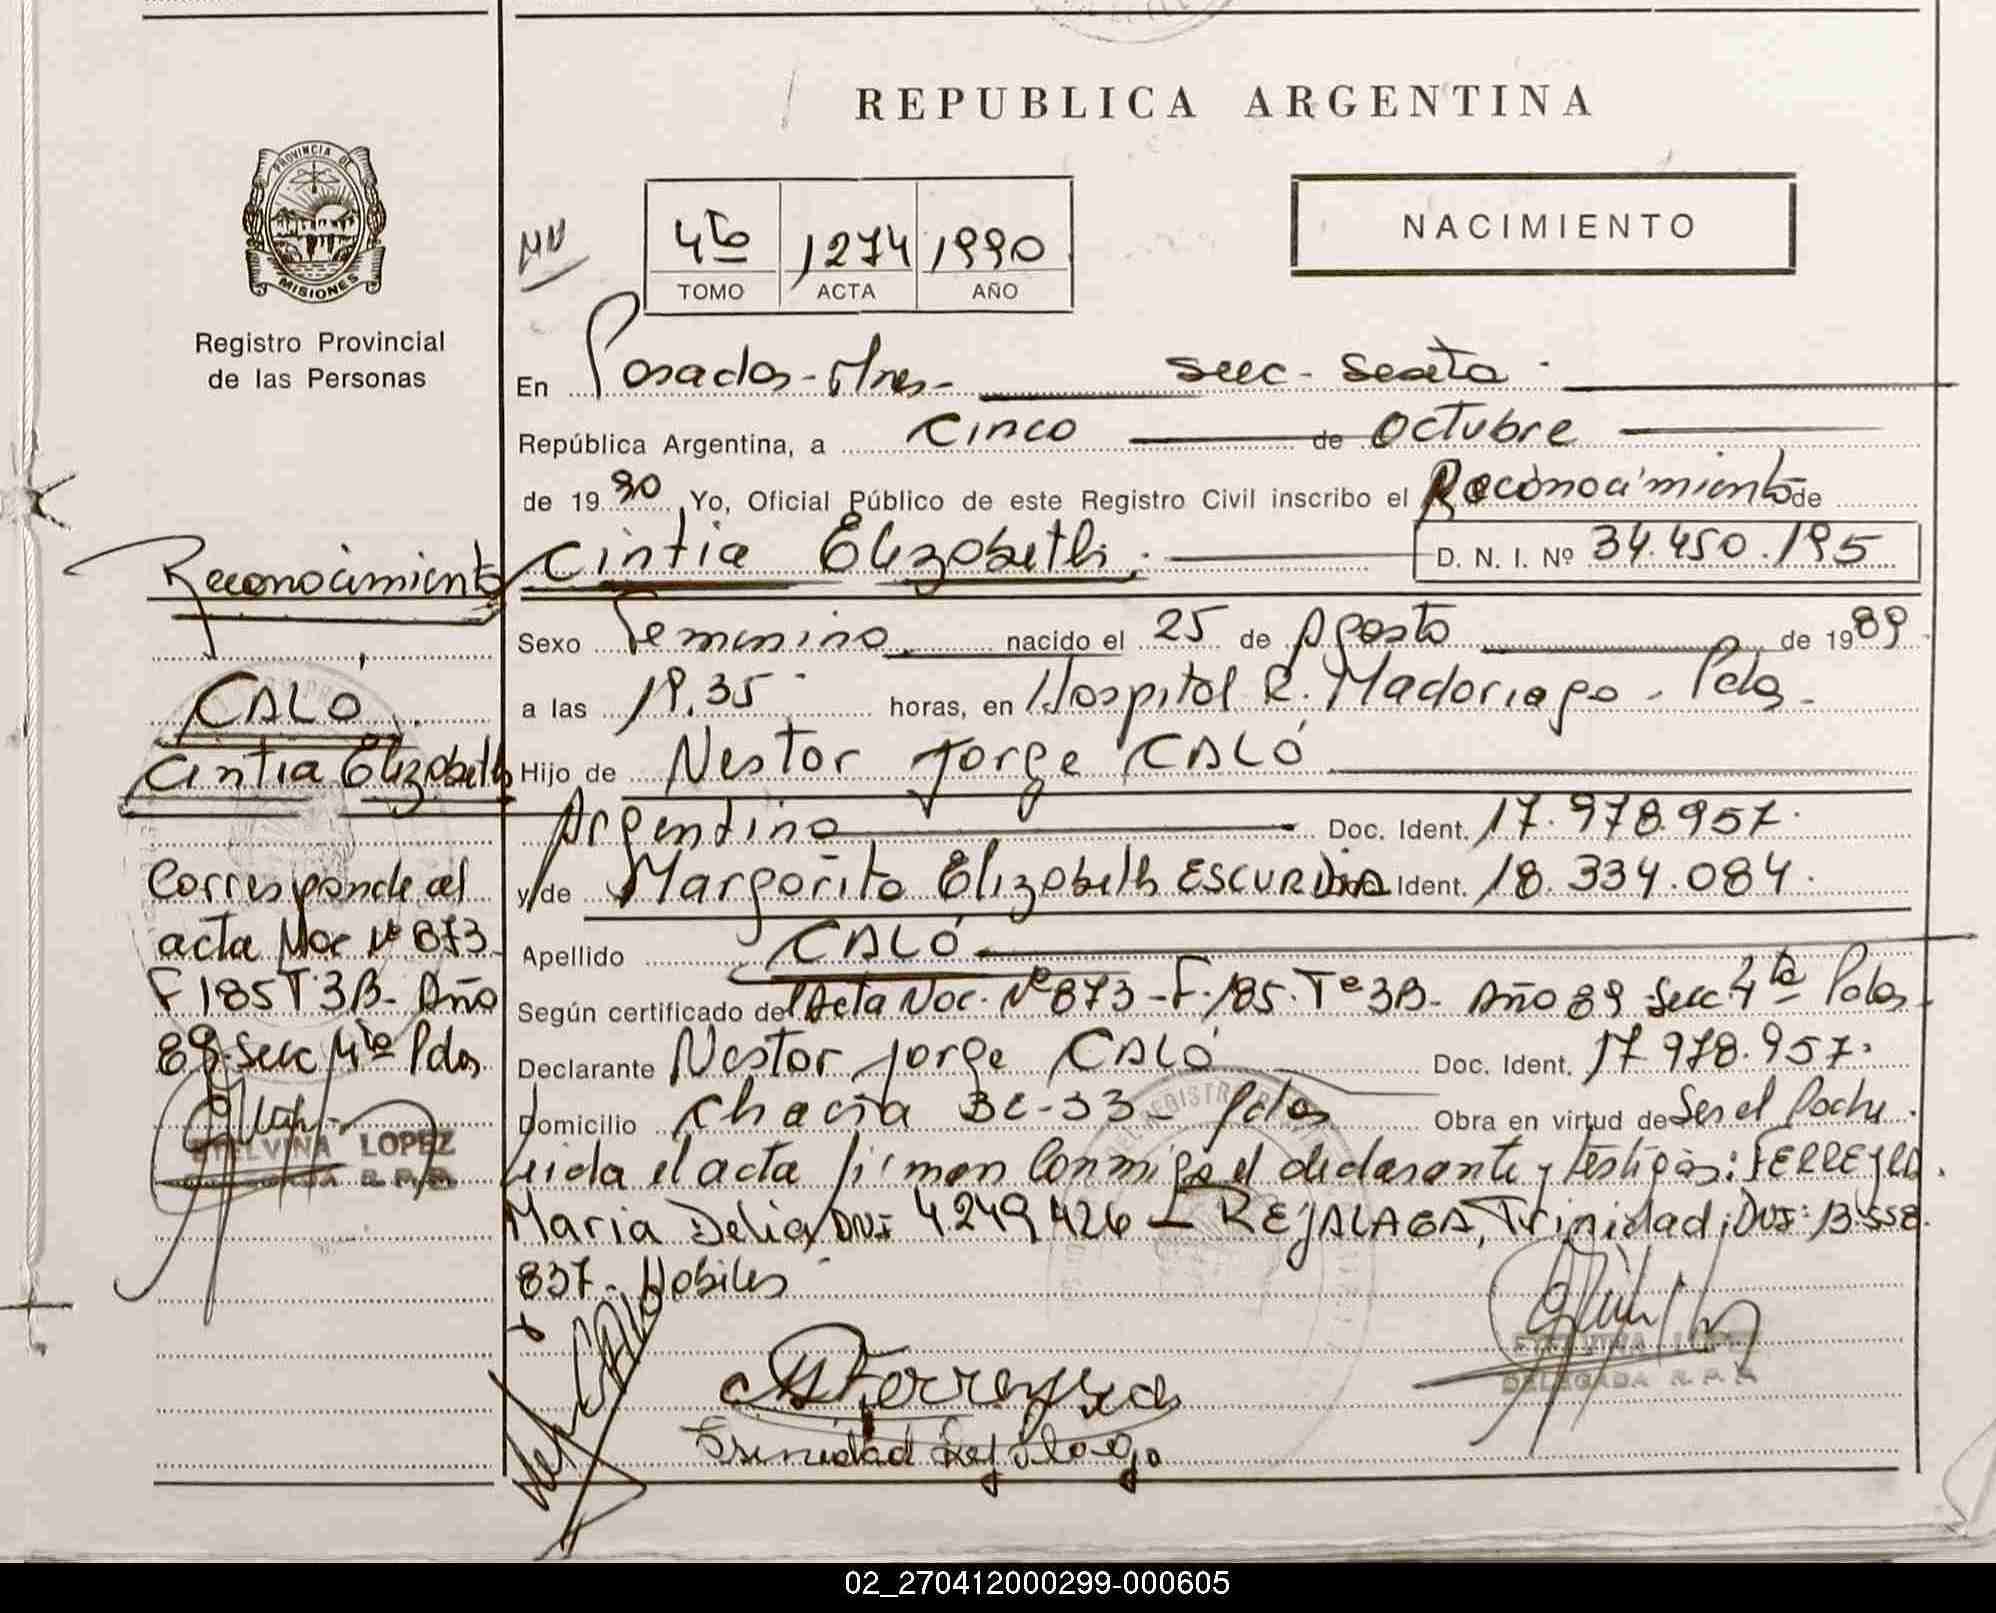 REPUBLICA ARGENTINA
PROVINCIA DE
MISIONES
Registro Provincial
de las Personas
NACIMIENTO
4to 1274 1990
TOMO ACTA AÑO
En Posadas - Mnes - Secc - Sexta
República Argentina, a cinco de octubre
de 1990 Yo, Oficial Público de este Registro Civil inscribo el Reconocimiento de
Cintia Elizabeth. D. N. I. Nº 34.450.195
Sexo Femenino nacido el 25 de Agosto de 1989
a las 19.35 horas, en Hospital R. Madariaga - Pdas -
Hijo de Nestor Jorge CALÓ
Argentino Doc. Ident. 17.978.957.
y de Margarita Elizabeth ESCURDIA Ident. 18.334.084.
Apellido CALÓ
Según certificado del Acta Nac. Nº 873 - F. 185. Tº 3B - Año 89 Secc 4ta Pdas
Declarante Nestor Jorge CALÓ Doc. Ident. 17.978.957.
Domicilio chacra 32-33 - Pdas Obra en virtud de Ser el Padre.
Leida el acta firman conmigo el declarante y testigos: FERREYRA
Maria Delia, DNI 4.249.426 - REJALAGA, Trinidad, DNI: 13.558.
837 - Hábiles
Reconocimiento
CALO
Cintia Elizabeth
Corresponde al
acta Nac Nº 873
F 185 T. 3B - Año
89 - Secc 4ta Pdas
ETELVINA LOPEZ
DELEGADA R.P.P.
M Ferreyra
Trinidad Rejalaga
ETELVINA LOPEZ
DELEGADA R.P.P.
02_270412000299-000605